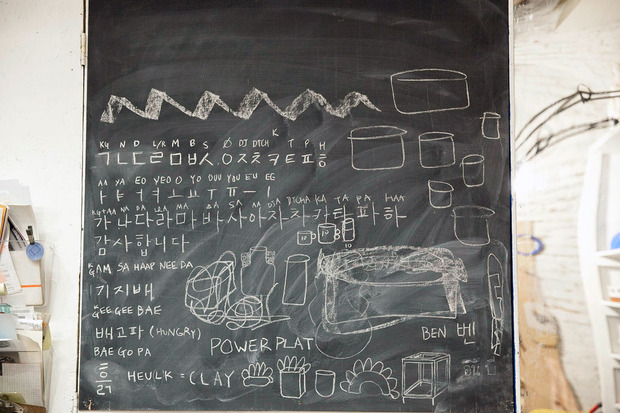 K
KG N D L/R M B S Ø DJ DTCH T P H
ㄱ ㄴ ㄷ ㄹ ㅁ ㅂ ㅅ ㅇ ㅈ ㅊ ㅋ ㅌ ㅍ ㅎ
AA YA EO YEO O YO OUU YOU EU EE
ㅏ ㅑ ㅓ ㅕ ㅗ ㅛ ㅜ ㅠ ㅡ ㅣ
NA DA MA BA SA AA DTCHA KA TA PA HAA
가 나 다 라 마 바 사 아 자 차 카 타 파 하
감사합니다
10 10
10
GAM SA HAAP NEE DA
기지배
GEE GEE BAE
배고파 (HUNGRY)
BAE GO PA
POWER PLAT
BEN 벤
흙 HEULK = CLAY